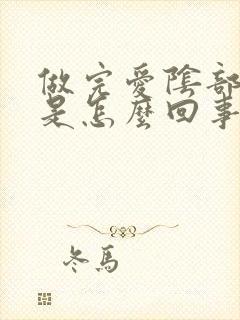 做完爱陰部
是怎麼回事
冬馬